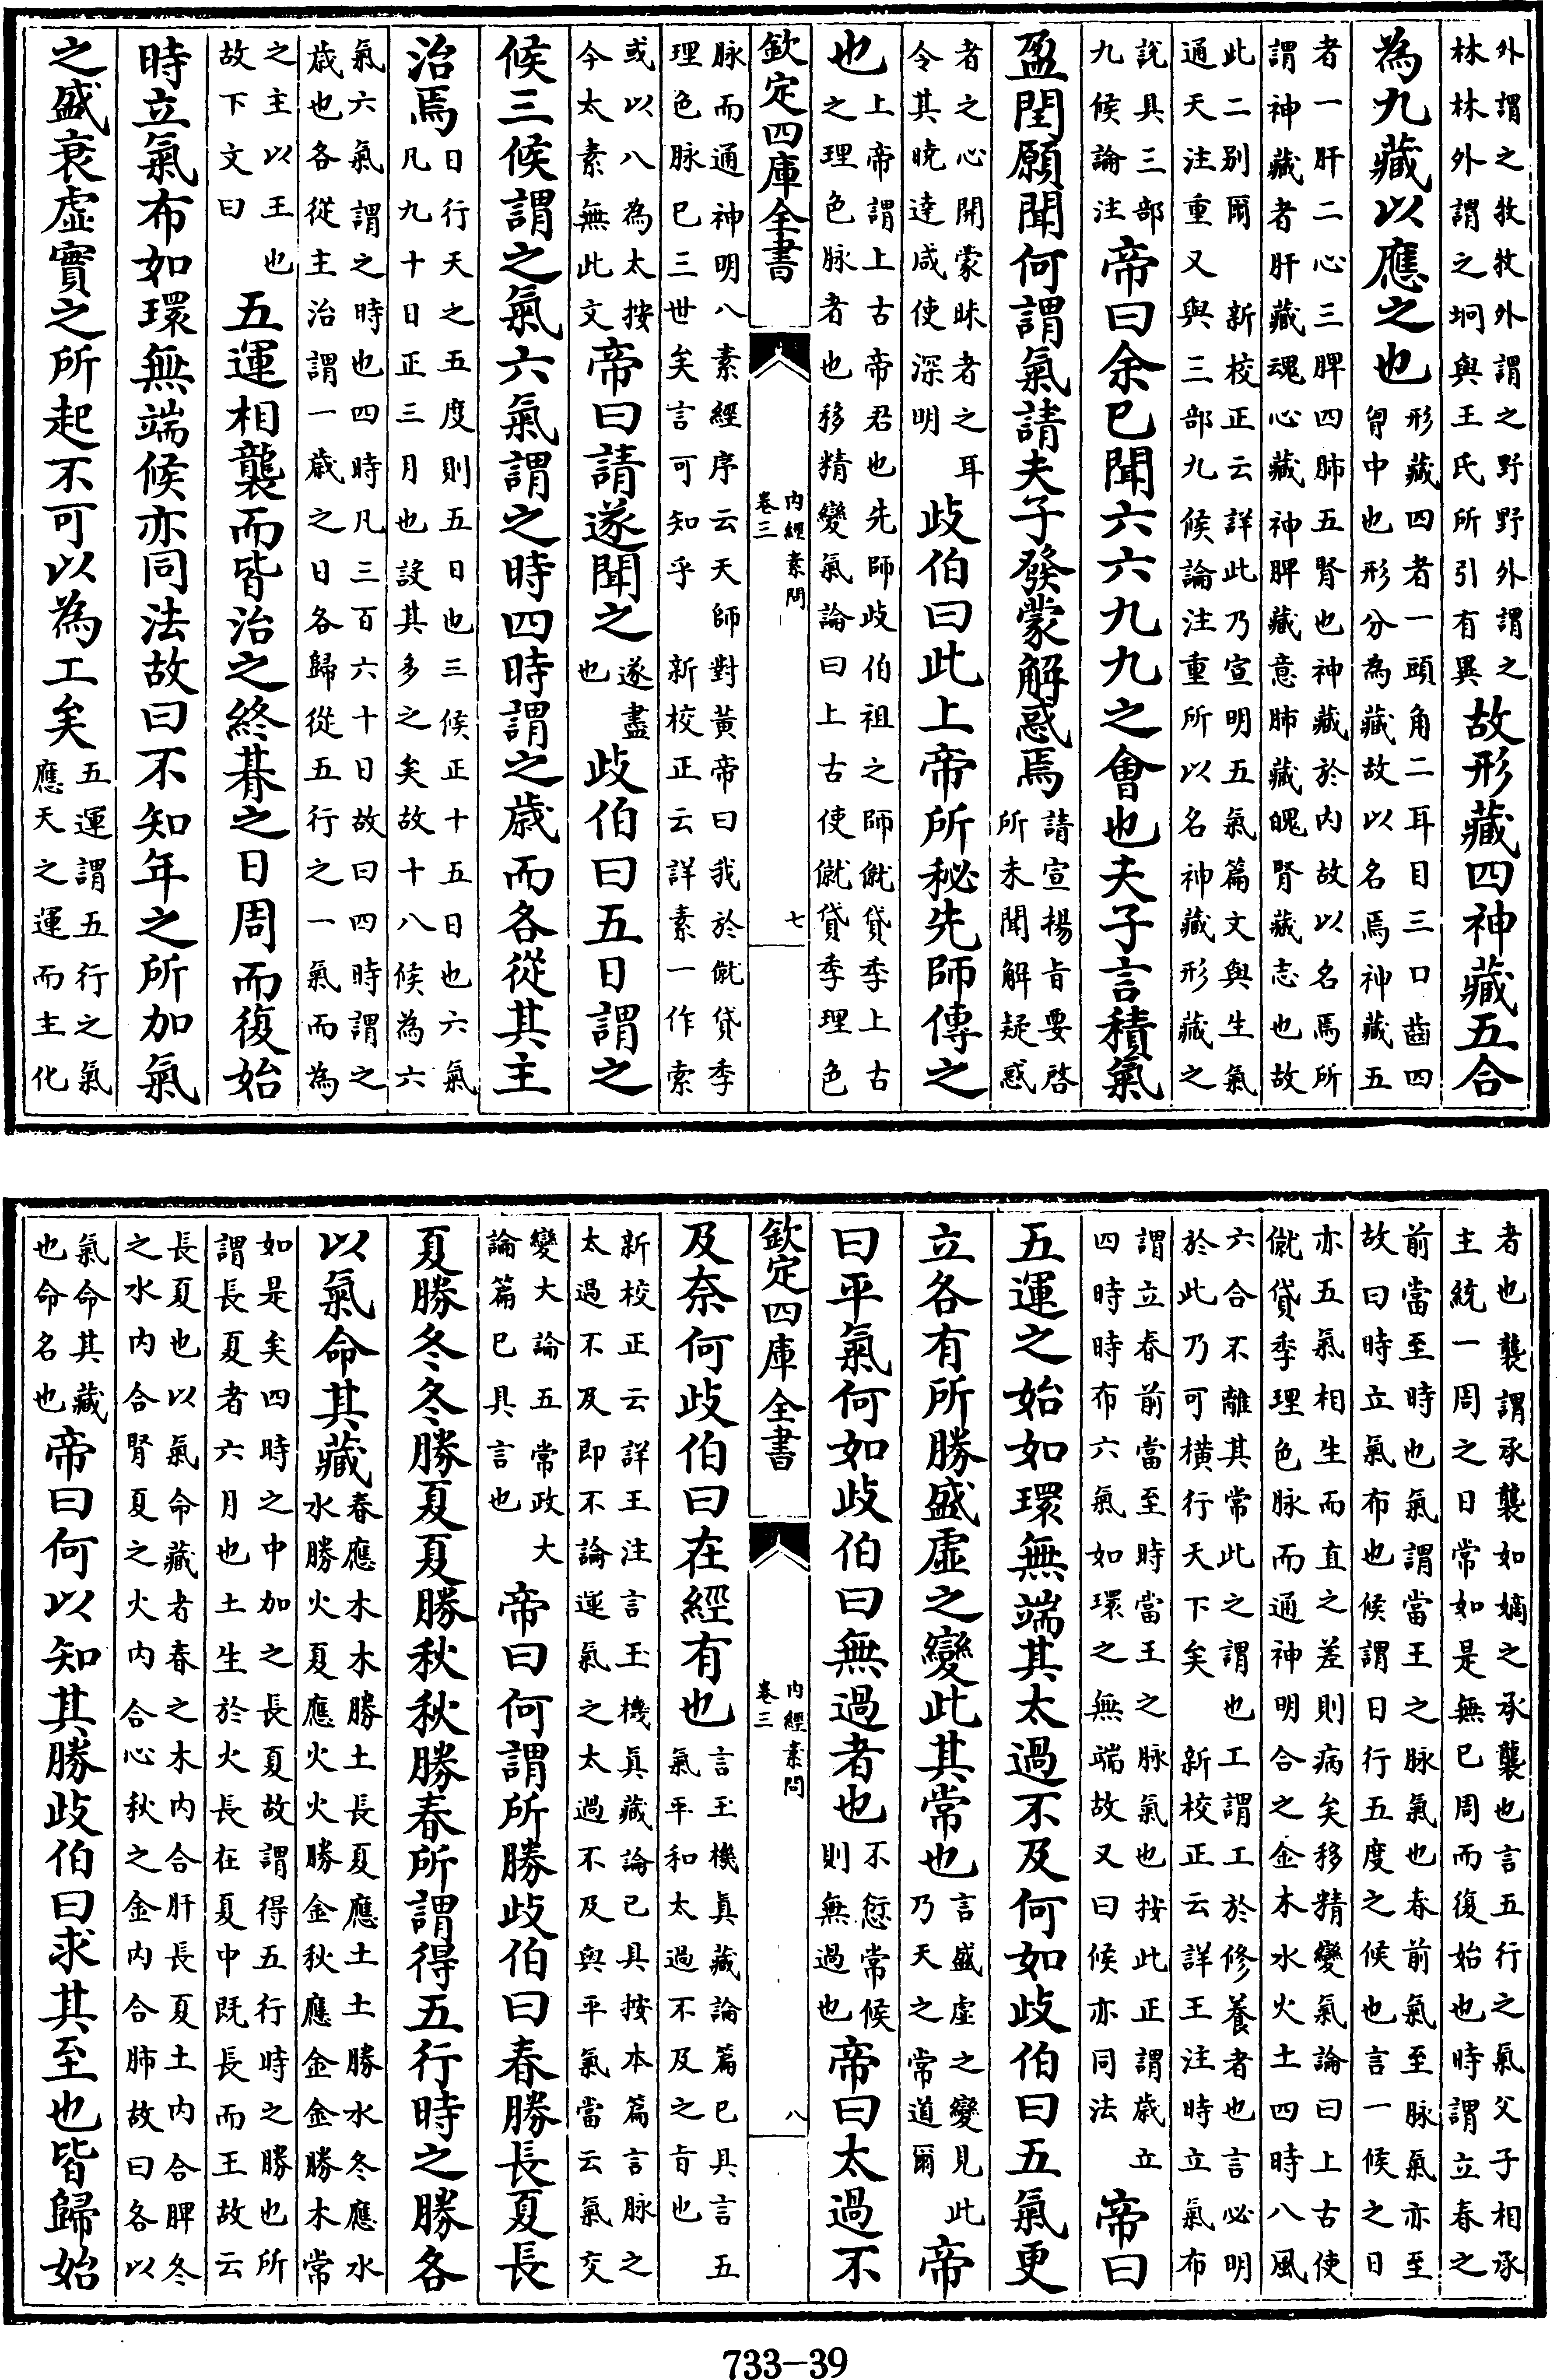 外謂之牧牧外謂之野野外謂之
林林外謂之坰與王氏所引有異
故形藏四神藏五合
為九藏以應之也
形藏四者一頭角二耳目三口齒四
胷中也形分為藏故以名焉神藏五
者一肝二心三脾四肺五腎也神藏於内故以名焉所
謂神藏者肝藏魂心藏神脾藏意肺藏魄腎藏志也故
此二别爾　新校正云詳此乃宣明五氣篇文與生氣
通天注重又與三部九候論注重所以名神藏形藏之
說具三部
九候論注
帝曰余已聞六六九九之會也夫子言積氣
盈閏願聞何謂氣請夫子發蒙解惑焉
請宣揚旨要啓
所未聞解疑惑
者之心開蒙昧者之耳
令其曉達咸使深明
歧伯曰此上帝所秘先師傳之
也
上帝謂上古帝君也先師歧伯祖之師僦貸季上古
之理色脉者也移精變氣論曰上古使僦貸季理色
欽定四庫全書
内經素問
卷三
七
脉而通神明八素經序云天師對黃帝曰我於僦貸季
理色脉已三世矣言可知乎　新校正云詳素一作索
或以八為太按
今太素無此文
帝曰請遂聞之
遂盡
也
歧伯曰五日謂之
候三候謂之氣六氣謂之時四時謂之歲而各從其主
治焉
日行天之五度則五日也三候正十五日也六氣
凡九十日正三月也設其多之矣故十八候為六
氣六氣謂之時也四時凡三百六十日故曰四時謂之
歲也各從主治謂一歲之日各歸從五行之一氣而為
之主以王也
故下文曰
五運相襲而皆治之終朞之日周而復始
時立氣布如環無端候亦同法故曰不知年之所加氣
之盛衰虛實之所起不可以為工矣
五運謂五行之氣
應天之運而主化
者也襲謂承襲如嫡之承襲也言五行之氣父子相承
主統一周之日常如是無已周而復始也時謂立春之
前當至時也氣謂當王之脉氣也春前氣至脉氣亦至
故曰時立氣布也候謂日行五度之候也言一候之日
亦五氣相生而直之差則病矣移精變氣論曰上古使
僦貸季理色脉而通神明合之金木水火土四時八風
六合不離其常此之謂也　工謂工於修養者也言必明
於此乃可橫行天下矣　新校正云詳王注時立氣布
謂立春前當至時當王之脉氣也按此正謂歲立
四時時布六氣如環之無端故又曰候亦同法
帝曰
五運之始如環無端其太過不及何如歧伯曰五氣更
立各有所勝盛虛之變此其常也
言盛虛之變見此
乃天之常道爾
帝
曰平氣何如歧伯曰無過者也
不愆常候
則無過也
帝曰太過不
欽定四庫全書
内經素問
卷三
八
及奈何歧伯曰在經有也
言玉機眞藏論篇已具言五
氣平和太過不及之旨也
新校正云詳王注言玉機眞藏論已具按本篇言脉之
太過不及即不論運氣之太過不及與平氣當云氣交
變大論五常政大
論篇已具言也
帝曰何謂所勝歧伯曰春勝長夏長
夏勝冬冬勝夏夏勝秋秋勝春所謂得五行時之勝各
以氣命其藏
春應木木勝土長夏應土土勝水冬應水
水勝火夏應火火勝金秋應金金勝木常
如是矣四時之中加之長夏故謂得五行時之勝也所
謂長夏者六月也土生於火長在夏中既長而王故云
長夏也以氣命藏者春之木内合肝長夏土内合脾冬
之水内合腎夏之火内合心秋之金内合肺故曰各以
氣命其藏
也命名也
帝曰何以知其勝歧伯曰求其至也皆歸始
733-39